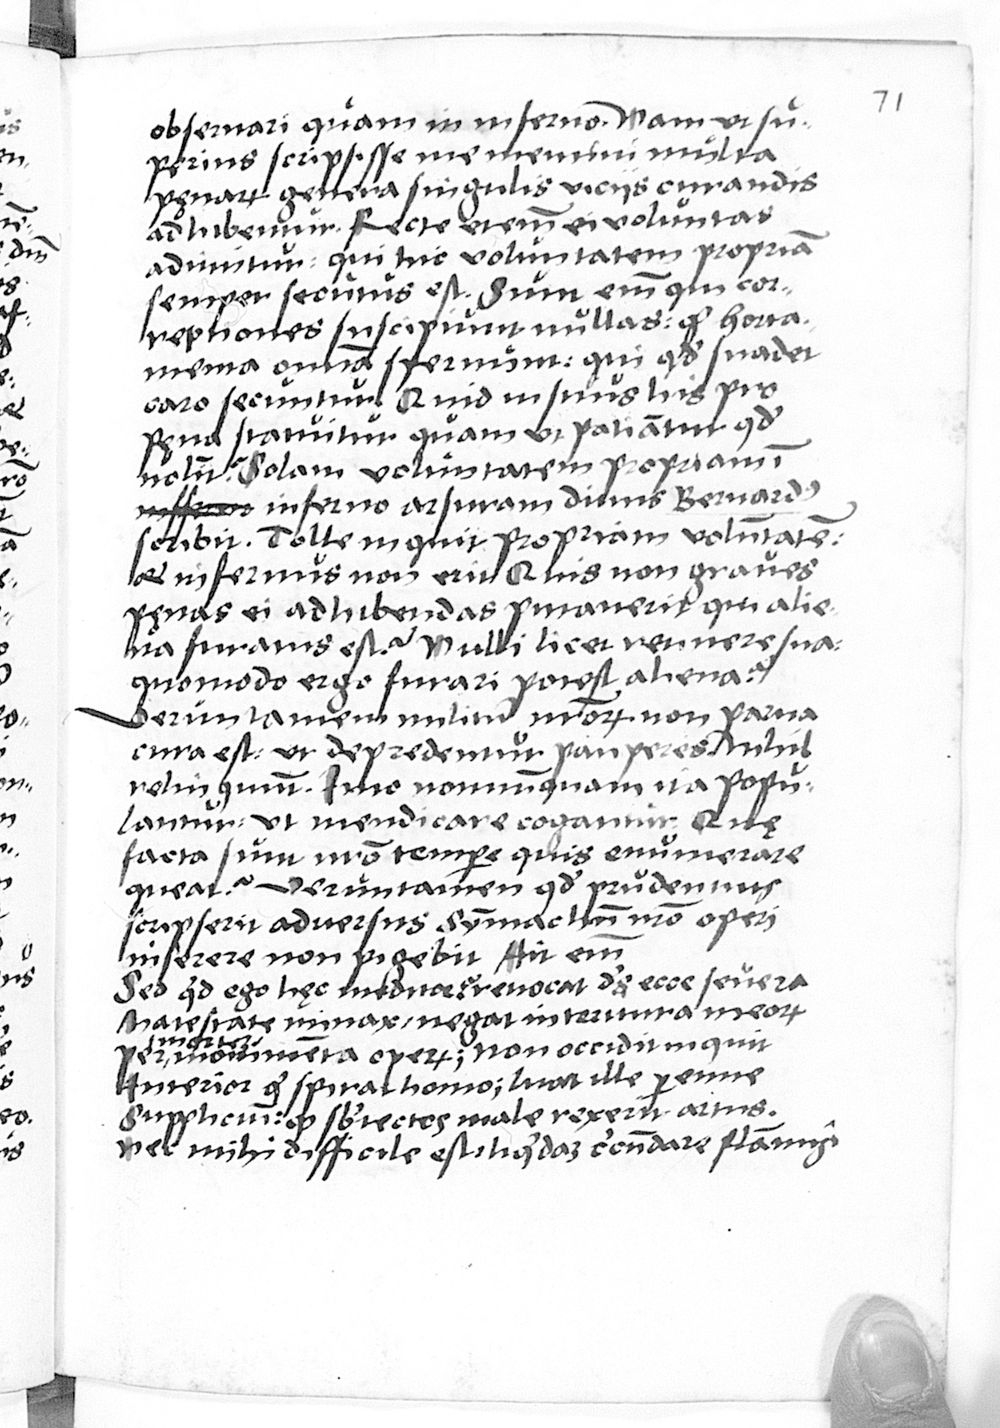 71
obseruari quam in inferno. Nam ut su-
perius scripsisse me memini multa
pęnarꝝ genera singulis vicijs curandis
adhibentur. Recte etenĩ ei voluntas
adimitur: qui hic voluntatem propriã
semper secutus est. Sunt enĩ qui cor-
reptiones suscipiunt nullas: qͥ horta-
menta omnia spernunt: qui qd̕ suadet
caro secuntur. Quid iustius his pro
pęna statuitur quam ut patiãtur qd̕
nolũt? Solam voluntatem propriam ĩ
inferno arsuram diuus Bernardꝰ
scribit. Tolle inquit propriam volũtatẽ:
et infernus non erit. Quis non graues
pęnas ei adhibendas putauerit qui alie-
na furatus est? Nulli licet retinere sua:
quomodo ergo furari potest aliena?
Veruntamen militũ nr̃orꝝ non parua
cura est: ut depredentur pauperes. Nihil
relinquunt. Imo nonnũquam ita popu-
lantur: ut mendicare cogantur. Quę
facta sunt nr̃o tempe quis enumerare
queat? Veruntamen qd̕ prudentius
scripserit aduersus Sỹmachũ nr̃o operi
inserere non pigebit. Ait enĩ
Sed qͥd ego hęc reuocat ds̃ ecce seuera
Maiestate minax, negat interitura meorꝝ
per mortẽ monumẽta operꝝ; non occidit inquit
Interior qͥ spirat homo; luat ille perenne
Suppliciũ: sb̕iectos male rexerit artus.
Nec mihi difficile est liqͥdaꝫ flãmis